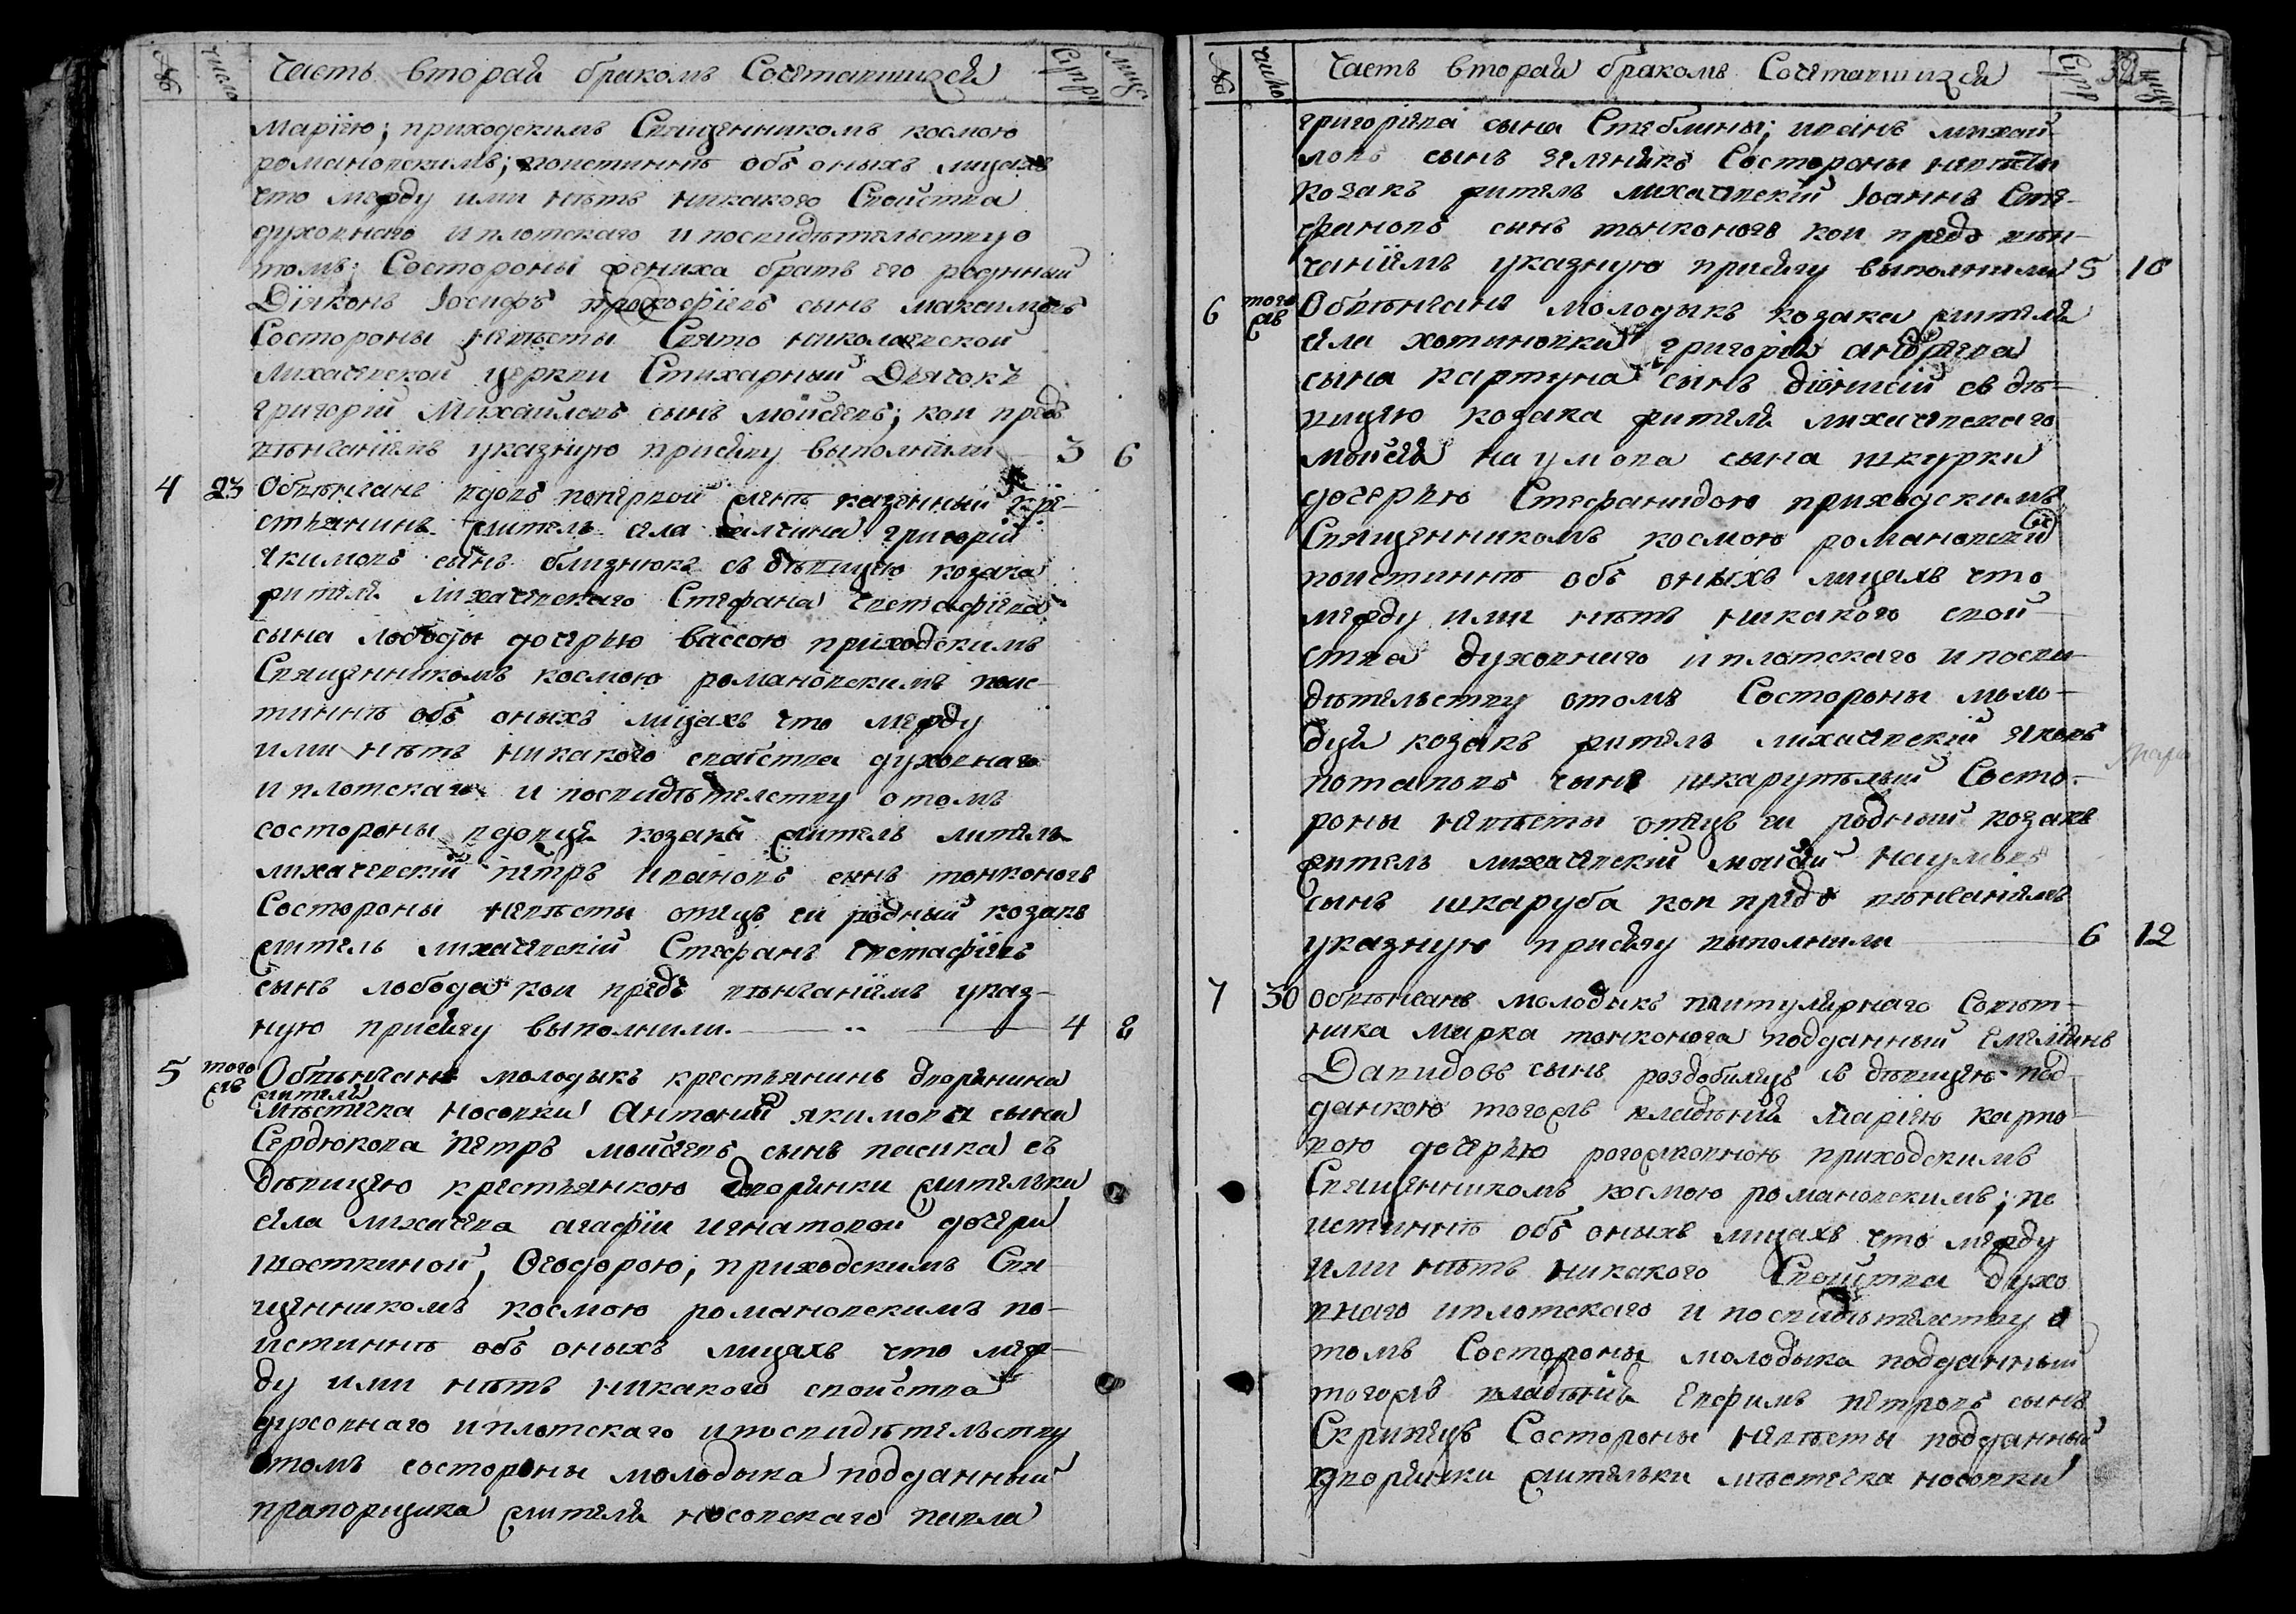 № число Часть вторая бракомъ Сочетавшихся Супру лица
Маріею; приходскимъ Священникомъ космою
романовскимъ; поистиннѣ объ оныхъ лицахъ
что между ими нѣтъ никакого Свойства
духовнаго и плотскаго и посвидѣтельствуо
томъ; Состороны жениха братъ его родный
Діяконъ Іосифъ прокофіевъ сынъ максимовъ
Состороны невѣсты Свято николаевской
лихачевской церкви Стихарный Дьячокъ
григорій Михайловъ сынъ мойсеевъ; кои предъ
вѣнчаніемъ указную присягу выполнили 3 6
4 23 Обвѣнчанъ вдовъ поперво женѣ казенный кре-
стьянинъ житель села григорій
якимовъ сынъ близнюкъ съ дѣвицею козака
жителя лихачевскаго Стефана евстафіева
сына лободы дочерью вассою приходскимъ
Священникомъ космою романовскимъ поис-
тиннѣ объ оныхъ лицахъ что между
ими нѣтъ никакого свойства духовнаго
и плотскаго и посвидѣтелству отомъ
состороны вдовца козакъ житель житель
лихачевскій петръ ивановъ сынъ тонконогъ
Состороны невѣсты отецъ еи родный козакъ
житель лихачевскій Стефанъ евстафіевъ
сынъ лобода кои предъ вѣнчаніемъ указ-
ную присягу выполнили. 4 8
5 того жъ Обвѣнчанъ молодыкъ крестьянинъ дворянина
жителя
мѣстечка носовки Антоній якимова сына
Сердюкова петръ мойсеевъ сынъ пасика съ
дѣвицею крестьянкою дворянки жителки
села лихачева агафіи игнатовой дочери
шосткиной, Ѳеодорою; приходскимъ Свя
щенникомъ космою романовскимъ по-
истиннѣ объ оныхъ лицахъ что меж-
ду ими нѣтъ никакого свойства
духовнаго и плотскаго и посвидѣтельству
отомъ состороны молодыка подданный
прапорщика жителя носовскаго павла
№ число Часть вторая бракомъ Сочетавшихся Супр 32 лица
григоріева сына Стеблины; иванъ михай-
ловъ сынъ земенякъ Состороны невѣсти
козакъ житель лихачевскій Іоаннъ Сте-
фановъ сынъ тонконогъ кои предъ вѣн-
чаніемъ указную присягу выполнили 5 10
6 того жъ Обвѣнчанъ молодыкъ козака жителя
села хотиновки григорія андреева
сына картуна сынъ діонисій съ дѣ-
вицею козака жителя лихачевскаго
мойсея наумова сына шкурки
дочерью Стефанидою приходскимъ
Священникомъ космою романовски
поистиннѣ объ оныхъ лицахъ что
между ими нѣтъ никакого свой-
ства духовнаго и плотскаго и посви-
дѣтельству отомъ Состороны моло-
дця козакъ житель лихачевскій яковъ
потаповъ сынъ шкарупѣлый Состо-
роны невѣсты отецъ еи родный козакъ
житель лихачевскій мойсей наумовъ
сынъ шкаруба кои предъ вѣнчаніемъ
указную присягу выполнили 6 12
7 30 обвѣнчанъ молодыкъ титулярнаго Совѣт-
ника марка тонконога подданный Емеліянъ
Давидовъ сынъ роздобимецъ съ дѣвицею под-
данкою тогожъ владѣнія маріею карпо-
вою дочерью рогожковною приходскимъ
Священникомъ космою романовскимъ; по
истиннѣ объ оныхъ лицахъ что между
ими нѣтъ никакого Свойства духо
внаго иплотскаго и посвидѣтелству о
томъ Состороны молодыка подданный
тогожъ владѣнія Евфимъ петровъ сынъ
Скрипецъ Состороны невѣсты подданный
дворянки жителки мѣстечка носовки